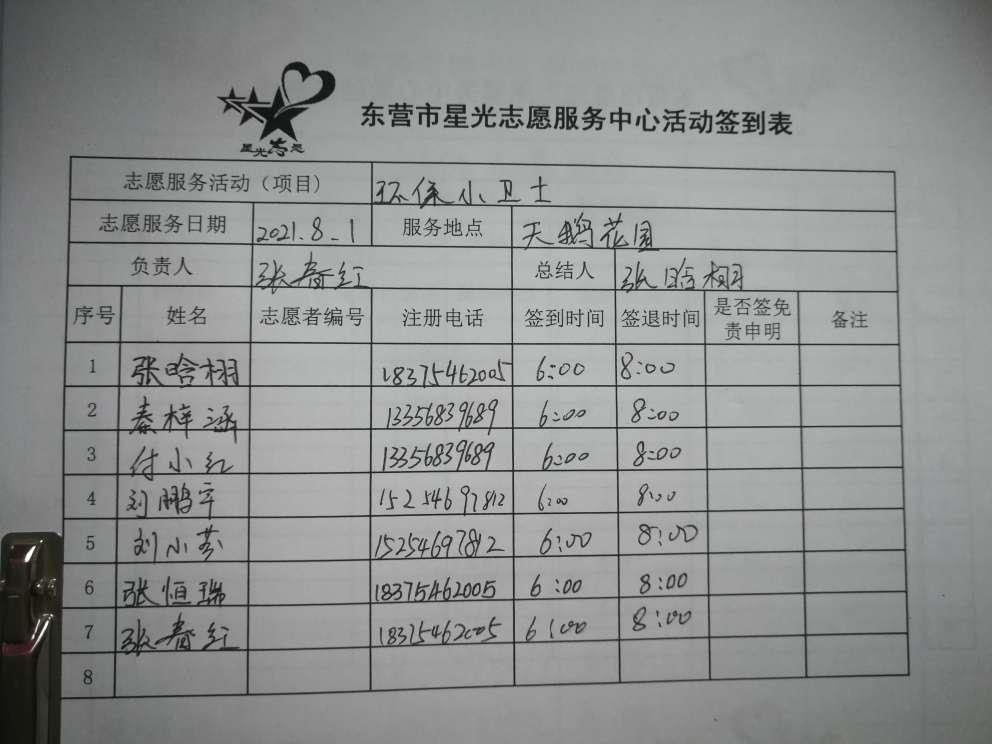 星光志愿
东营市星光志愿服务中心活动签到表
志愿服务活动（项目） 环保小卫士
志愿服务日期 2021.8.1 服务地点 天鹅花园
负责人 张春红 总结人 张晗栩
序号 姓名 志愿者编号 注册电话 签到时间 签退时间 是否签免责申明 备注
1 张晗栩 18375462005 6:00 8:00
2 秦梓涵 13356839689 6:00 8:00
3 付小红 13356839689 6:00 8:00
4 刘鹏宇 15254697812 6:00 8:00
5 刘小芬 15254697812 6:00 8:00
6 张恒瑞 18375462005 6:00 8:00
7 张春红 18375462005 6:00 8:00
8